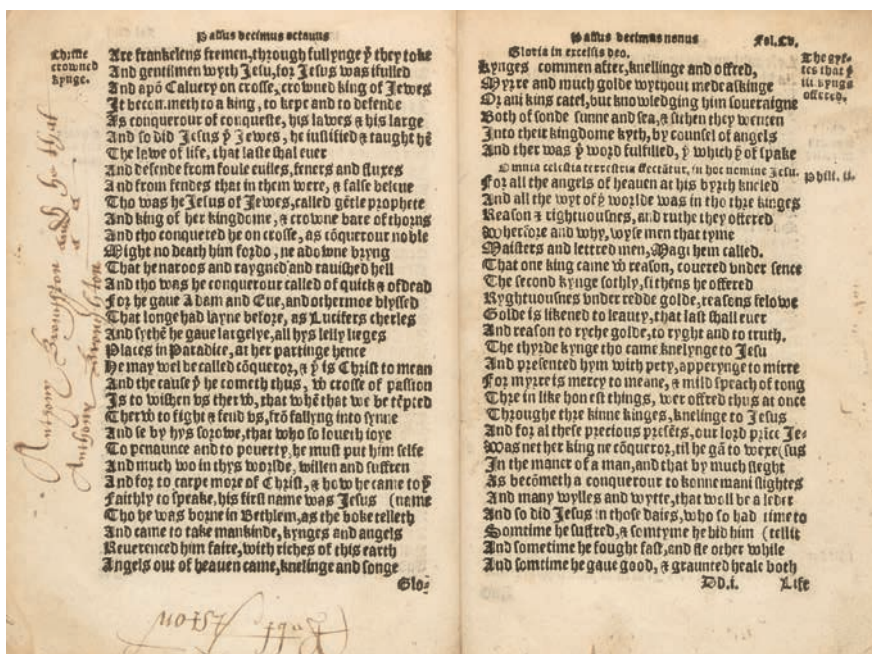 Passus decimus octauus
Christe
crowned
kynge.
Are frankelens fremen, through fullynge þͭ they toke
And gentilmen wyth Jesu, for Jesus was ifulled
And apō Caluery on crosse, crowned king of Jewes
It becom.meth to a king, to kepe and to defende
As conquerour of conqueste, his lawes & his large
And so did Jesus þͤ Jewes, he iustified & taught hē
The lawe of life, that laste shal euer
And defende from foule euiles, feners and fluxes
And from fendes that in them were, & false beleue
Tho was he Jesus of Jewes, called gētle prophete
And king of her kingdome, & crowne bare of thorns
And tho conquered he on crosse, as cōquerour noble
Might no death him fordo, ne adowne bryng
That he naroos and raygned and rauished hell
And tho was he conquerour called of quick & of dead
For he gaue Adam and Eue, and other moe blyssed
That longe had layne before, as Lucifers cherles
And sythē he gaue largelye, all hys lelly lieges
Places in Paradice, at her partinge hence
He may wel be called cōqueror, & þͭ is Christ to mean
And the cause þͭ he cometh thus, wͭ crosse of passion
Is to wishen vs therwͭ, that whē that we be tēpted
Therwͭ to fight & fend vs, frō fallyng into synne
And se by hys sorowe, that who so loueth ioye
To penaunce and to pouerty, he must put him selfe
And much wo in thys worlde, willen and suffren
And for to carpe more of Christ, & how he came to þͭ
Faithly to speake, his first name was Jesus (name
Tho he was borne in Bethlem, as the boke telleth
And came to take mankinde, kynges and angels
Reuerenced him faire, with riches of this earth
Angels out of heauen came, knelinge and songe
Glo-
Anthony Bromgston and ho that
Anthony Broughton
Aston
Passus decimus nonus
Fol.Cv.
Gloria in excelsis deo.
Kynges commen after, knellinge and offred,
Myrre and much golde wythout mede askinge
Or ani kins catel, but knowledging him soueraigne
Both of sonde sunne and sea, & sithen they wenten
Into their kingdome kyth, by counsel of angels
And ther was þͭ word fulfilled, þͤ which þͧ of spake
Omnia celestia terrestria flectātur, in hoc nomine Jesu.
For all the angels of heauen at his byrth kneled
And all the wyt of þͤ worlde was in tho thre kinges
Reason & rightuousnes, and ruthe they offered
Wherfore and why, wyse men that tyme
Maisters and lettred men, Magi hem called.
That one king came wͭ reason, couered vnder sence
The second kynge sothly, sithens he offered
Ryghtuousnes vnder redde golde, reasons felowe
Golde is likened to leauty, that last shall euer
And reason to ryche golde, to ryght and to truth.
The thyrde kynge tho came knelynge to Jesu
And presented hym with pety, apperynge to mirre
For myrre is mercy to meane, & mild speach of tong
Thre in like honest things, wer offred thus at once
Throughe thre kinne kinges, knelinge to Jesus
And for al these precious presēts, our lord prīce Je-
Was nether king ne cōqueror, til he gā to wexe (sus
In the maner of a man, and that by much sleght
As becōmeth a conquerour to konne mani slightes
And many wylles and wytte, that woll be a leder
And so did Jesus in those daies, who so had time to
Somtime he suffred, & somtyme he hid him (tell it
And sometime he fought fast, and fle other while
And somtime he gaue good, & graunted heale both
DD.i.
Life
The gyf-
tes that þͤ
iii kyngs
offered.
Phill. ii.